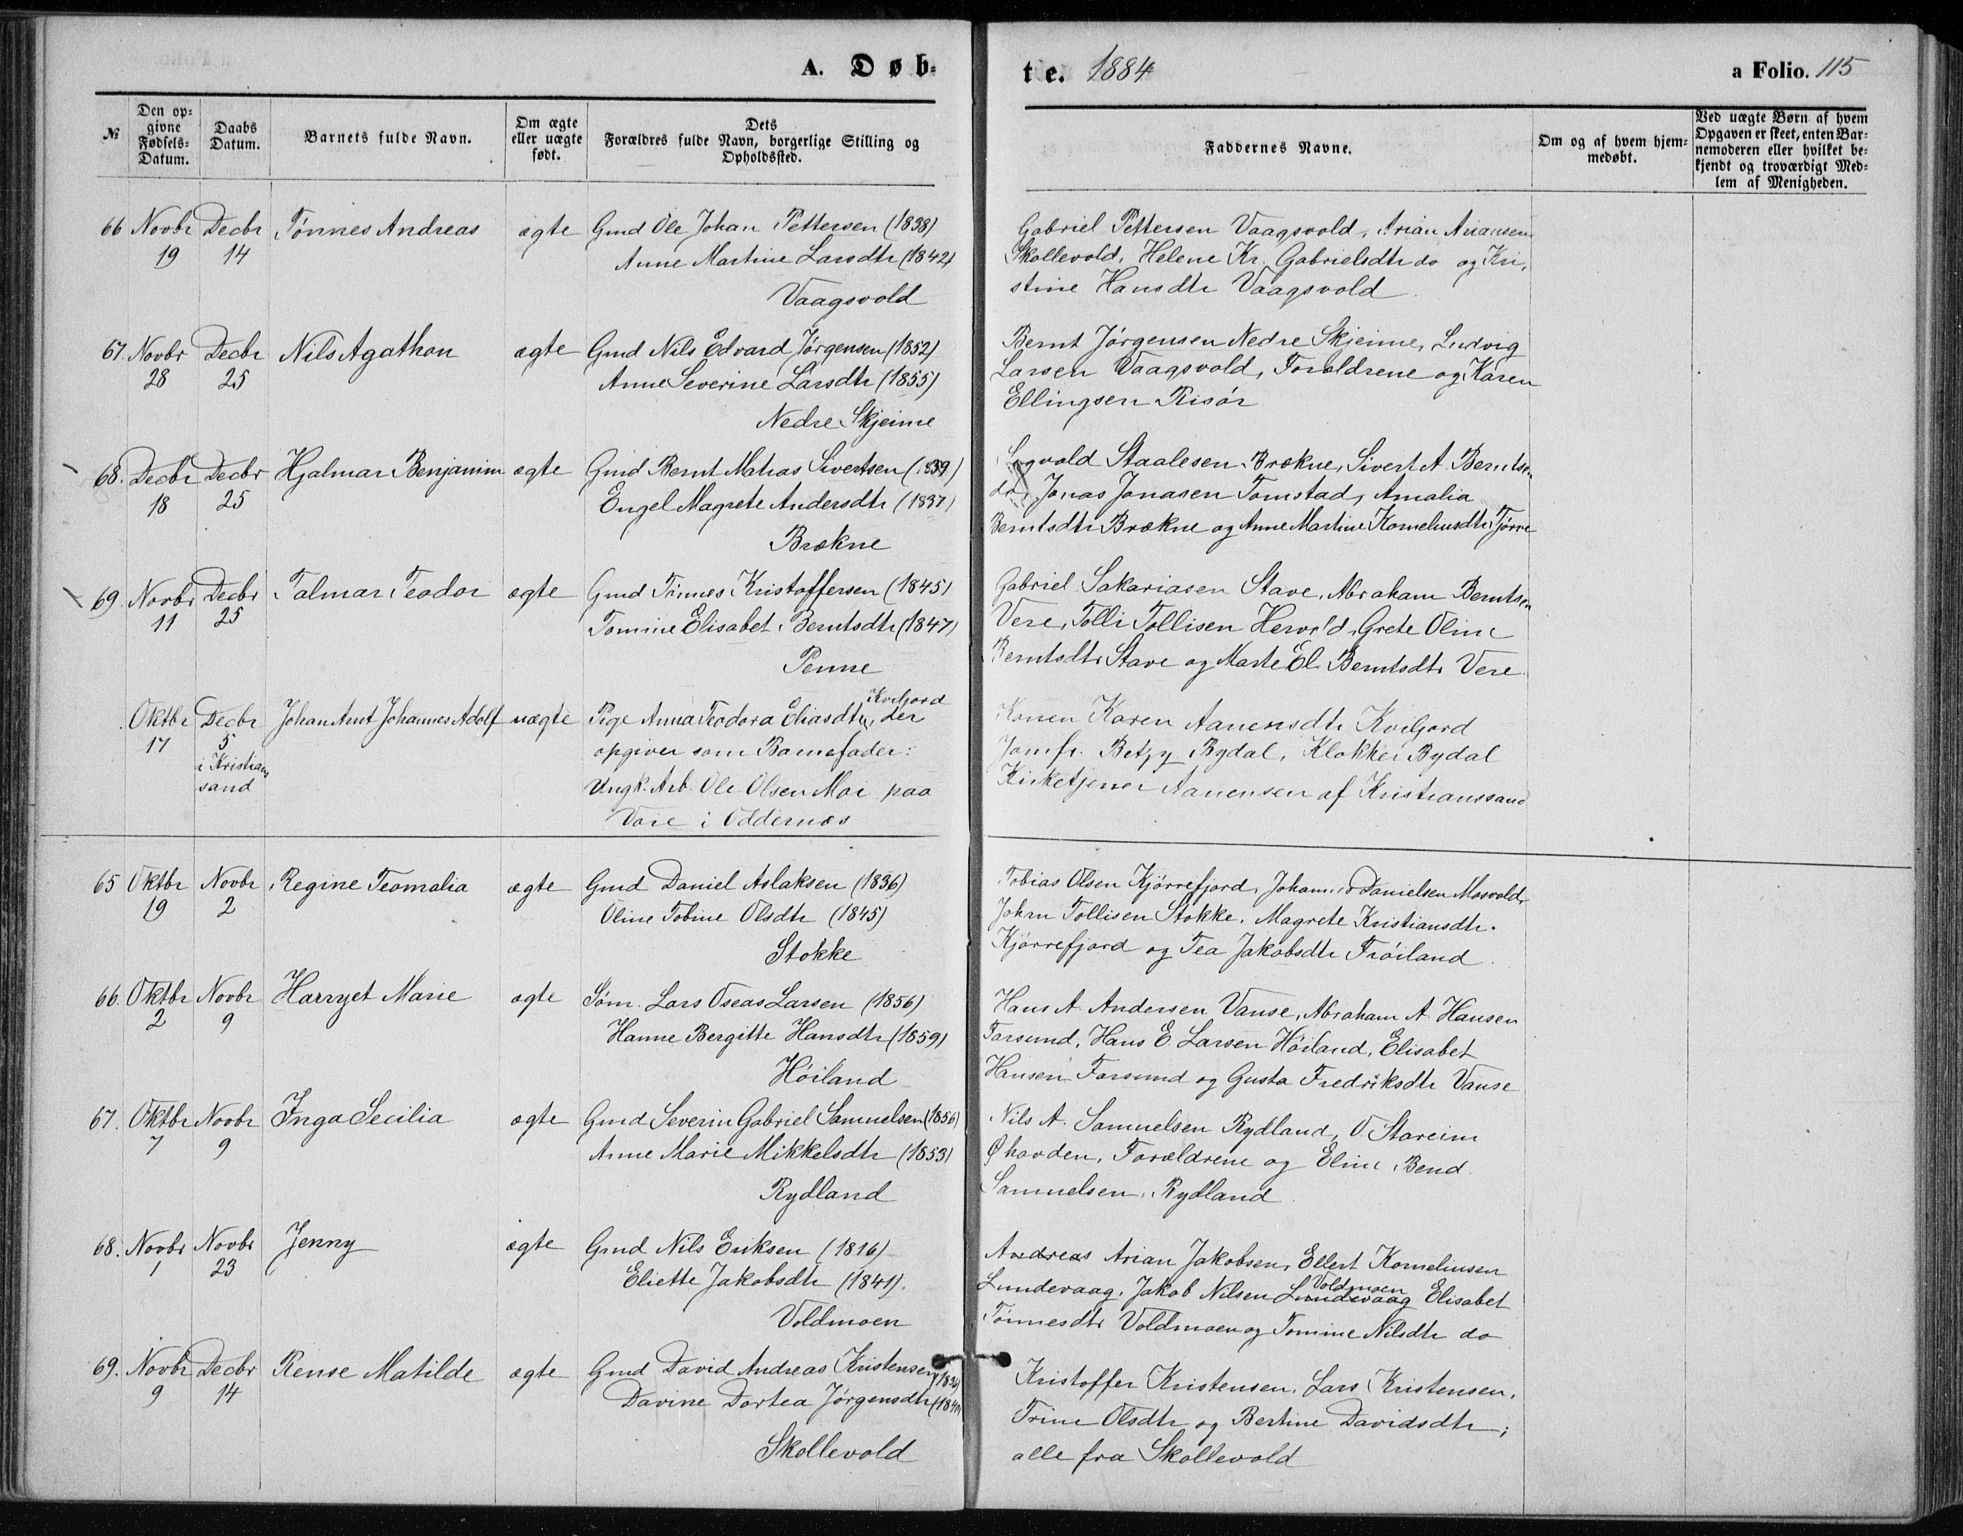 A. Døb-
te. 1884
a Folio. 115
№
Den op-
givne
Fødsels-
Datum.
Daabs
Datum.
Barnets fulde Navn.
Om ægte
eller uægte
født.
Dets
Forældres fulde Navn, borgerlige Stilling og
Opholdssted.
Faddernes Navne.
Om og af hvem hjem-
medøbt.
Ved uægte Børn af hvem
Opgaven er skeet, enten Bar-
nemoderen eller hvilket be-
kjendt og troværdigt Med-
lem af Menigheden.
66 Novbr Decbr Tønnes Andreas ægte Gmd Ole Johan Pettersen (1838)
19 14 Anne Martine Larsdtr (1842)
Vaagsvold
Gabriel Pettersen Vaagsvold, Arian Ariansen
Skollevold, Helene Kr. Gabrielsdtr do og Kri-
stine Hansdtr Vaagsvold
67. Novbr Decbr Nils Agathon ægte Gmd Nils Edvard Jørgensen (1852)
28 25 Anne Severine Larsdtr (1855)
Nedre Skjeime
Bernt Jørgensen Nedre Skjeime, Ludvig
Larsen Vaagsvold, Forældrene og Karen
Ellingsen Risør
68. Decbr Decbr Hjalmar Benjamin ægte Gmd Bernt Matias Sivertsen (1839)
18 25 Engel Magrete Andersdtr (1837)
Brækne
Staalesen Brækne, Sivert A. Berntsen
do, Jonas Jonasen Tomstad, Amalia
Berntsdtr Brækne og Anne Martine Korneliusdtr Tjørve
69. Novbr Decbr Talmar Teodor ægte Gmd Tønnes Kristoffersen (1845)
11 25 Tomine Elisabet Berntsdtr (1847)
Penne
Gabriel Sakariasen Stave, Abraham Berntsen
Vere, Tolli Tollisen Hervold, Grete Oline
Berntsdtr Stave og Marte El. Berntsdtr Vere
Oktbr Decbr Johan Arnt Johannes Adolf uægte Pige Anna Teodora Eliasdtr, Kviljord der
17 5 opgiver som Barnefader:
i Kristian
sand Ungk. Arb. Ole Olsen Moe paa
i Oddernæs
Konen Karen Aanensdtr Kviljord
Jomfr. Betsy Rydal, Klokker Bydal
Kirketjener Aanensen af Kristianssand
65 Oktbr Novbr Regine Teomalia ægte Gmd Daniel Aslaksen (1836)
19 2 Oline Tobine Olsdtr (1845)
Stokke
Tobias Olsen Kjørrefjord, Johannes Danielsen Mosvold,
Johan Tollisen Stokke, Magrete Kristiansdtr
Kjørrefjord og Tea Jakobsdtr Frøiland
66. Oktbr Novbr Harryet Marie ægte Søm. Lars Oseas Larsen (1856)
2 9 Hanne Bergitte Hansdtr (1859)
Høiland
Hans A. Andersen Vanse, Abraham A. Hansen
Farsund, Hans E. Larsen Høiland, Elisabet
Hansen Farsund og Gusta Fredriksdtr Vanse
67. Oktbr Novbr Inga Secilia ægte Gmd Severin Gabriel Samuelsen (1856)
7 9 Anne Marie Mikkelsdtr (1853)
Rydland
Nils A. Samuelsen Rydland, O. Stareim
Øhovden, Forældrene og Eline Bend.
Samuelsen, Rydland
68. Novbr Novbr Jenny ægte Gmd Nils Eriksen (1816)
1 23 Eliette Jakobsdtr (1841).
Voldmoen
Andreas Arian Jakobsen, Ellert Korneliusen
Lundevaag, Jakob Nilsen Lundevaag Voldmoen Elisabet
Tønnesdtr Voldmoen og Tomine Nilsdtr do
69. Novbr Decbr Rense Matilde ægte Gmd David Andreas Kristensen
9 14 Davine Dortea Jørgensdtr
Skollevold
Kristoffer Kristensen, Lars Kristensen,
Trine Olsdtr og Bertine Davidsdtr,
alle fra Skollevold